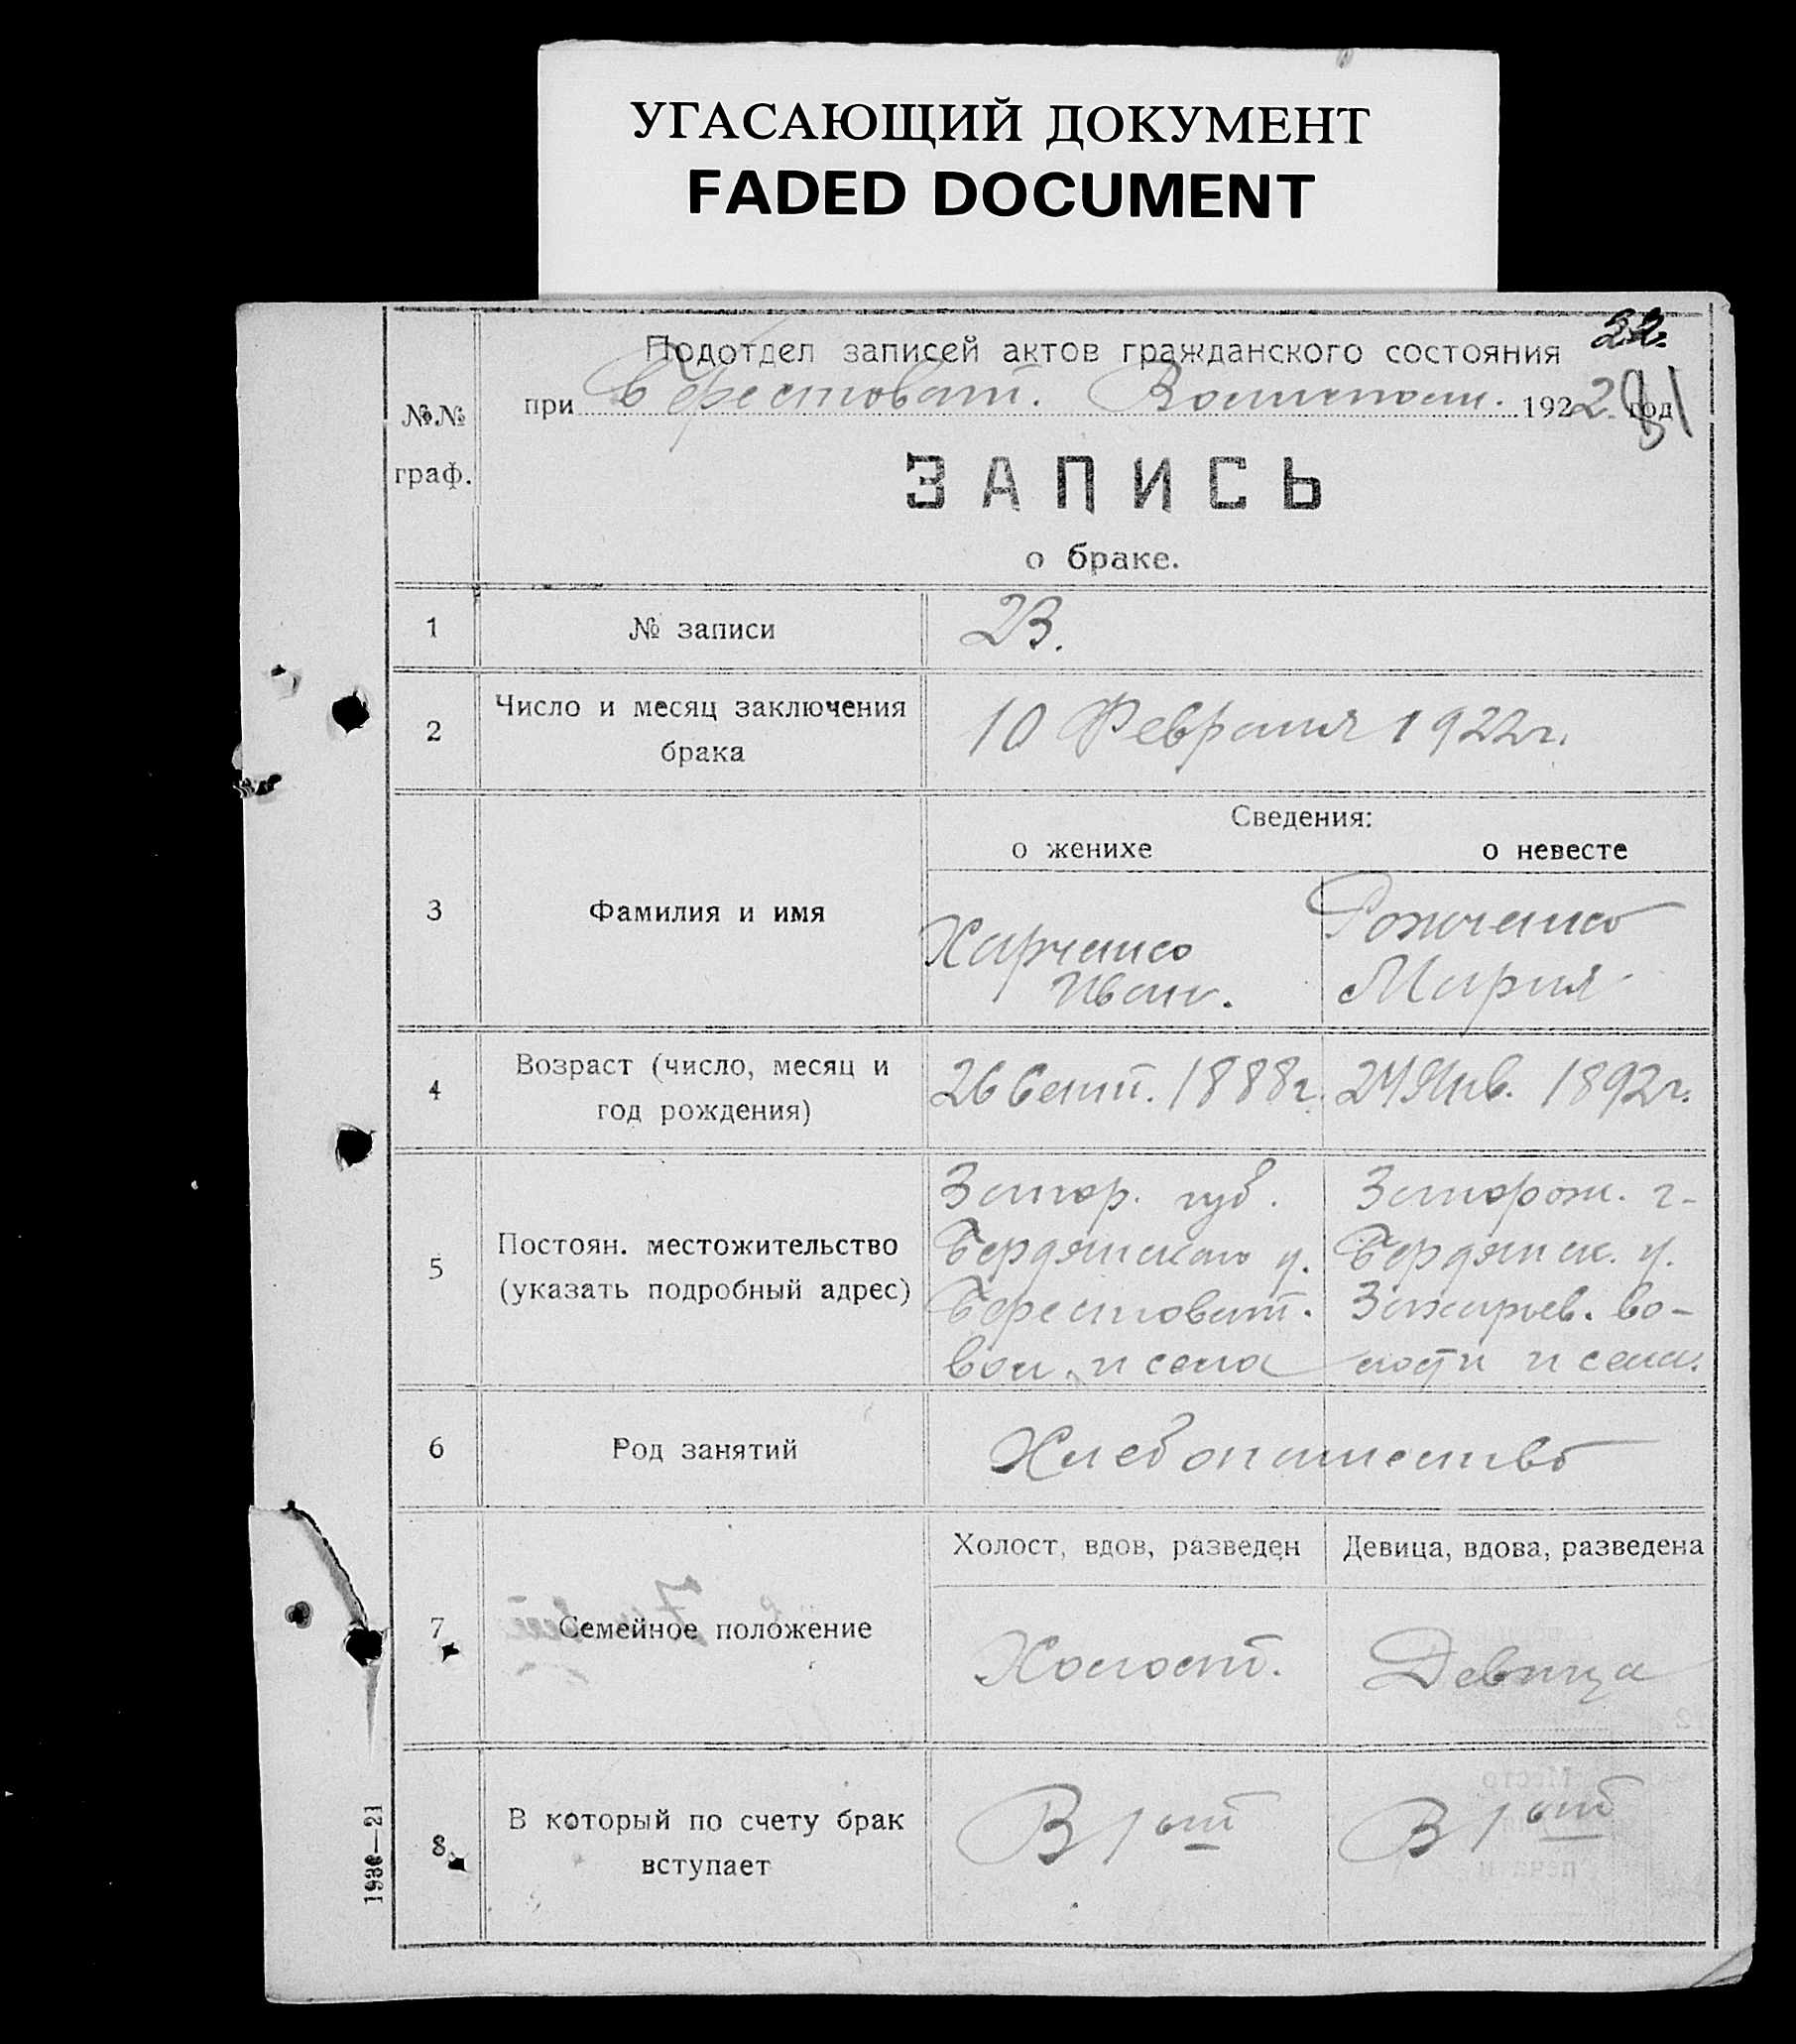 УГАСАЮЩИЙ ДОКУМЕНТ
FADED DOCUMENT
22.
Подотдел записей актов гражданского состояния
при Берестоват. Волисполк. 1922 год
№№
граф.
ЗАПИСЬ
о браке.
1 № записи 23.
2 Число и месяц заключения
брака
10 Февраля 1922г.
Сведения:
о женихе о невесте
3 Фамилия и имя
Харченко
Иван.
Рожченко
Мария
4 Возраст (число, месяц и
год рождения)
26 Сент. 1888г. 24 Янв. 1892г.
5 Постоян. местожительство
(указать подробный адрес)
Запор. губ.
Бердянского у.
Берестоват.
вол. и села
Запорож. г-
Бердянск. у.
Захарьев. во-
лости и села.
6 Род занятий Хлебопашество
7 Семейное положение
Холост, вдов, разведен Девица, вдова, разведена
Холост. Девица
8 В который по счету брак
вступает
В 1ый В 1ый
1936—21